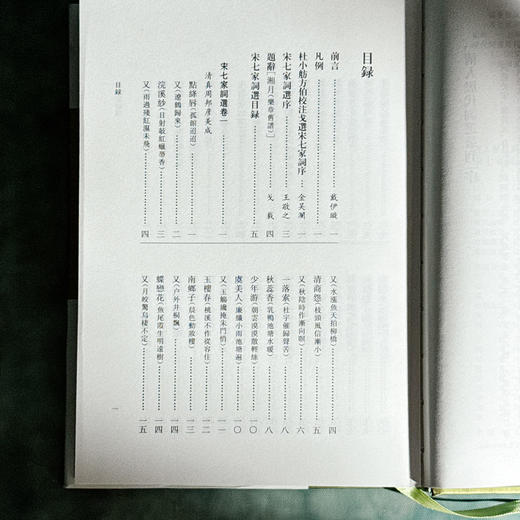 目録
前言……戴伊璇 一
凡例……一
杜小舫方伯校注戈選宋七家詞序……金吴瀾 一
宋七家詞選序……王敬之 三
題辭［湘月（樂章舊譜）］……戈載 四
宋七家詞選目録……五
宋七家詞選卷一……一
清真周邦彦美成
點絳唇（孤館迢迢）……一
又（遼鶴歸來）……二
浣溪紗（日射敧紅蠟蔕香）……三
又（雨過殘紅濕未飛）……四
又（水漲魚天拍柳橋）……四
清商怨（枝頭風信漸小）……五
又（秋陰時作漸向暝）……六
一落索（杜宇催歸聲苦）……八
秋蕊香（乳鴨池塘水暖）……八
少年游（朝雲漠漠散輕絲）……一〇
虞美人（廉纖小雨池塘遍）……一〇
又（玉觴纔掩朱門悄）……一一
玉樓春（桃溪不作從容住）……一二
南鄉子（晨色動妝樓）……一三
又（户外井桐飄）……一四
蝶戀花（魚尾霞生明遠樹）……一四
又（月皎驚烏棲不定）……一五
目録
一